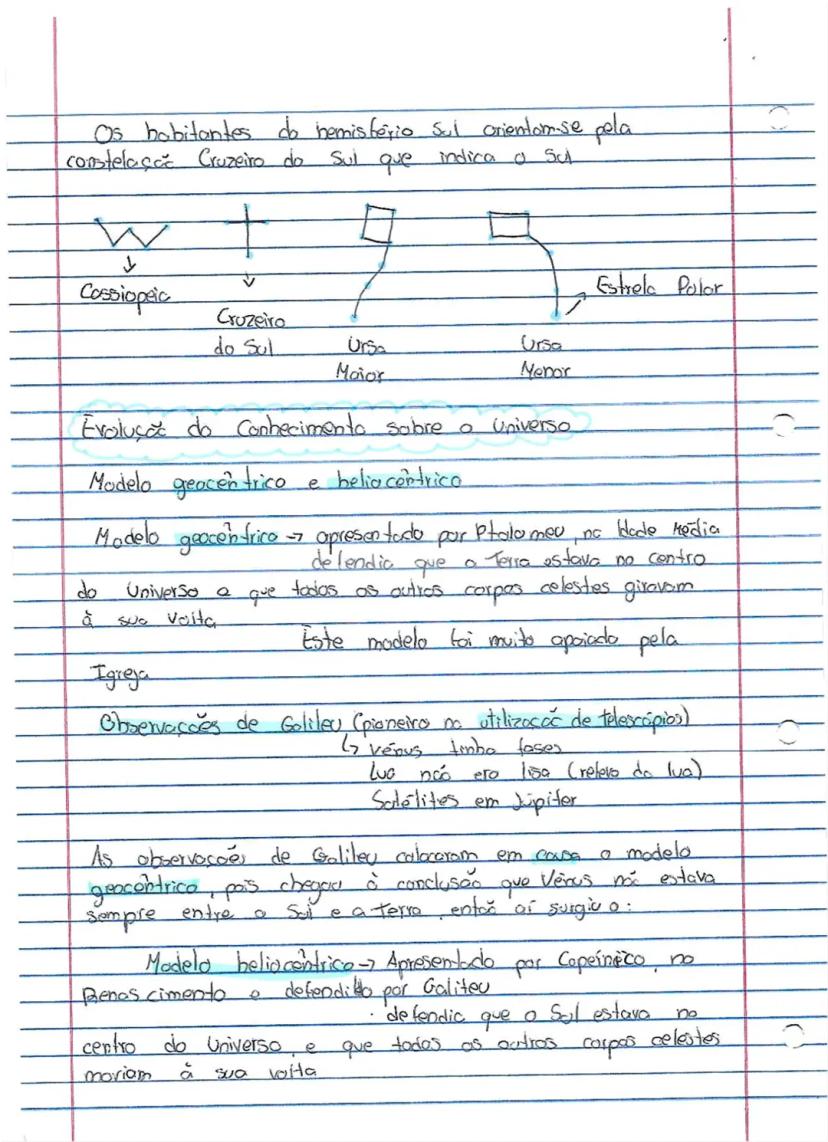 Os habitantes do hemisfério Sul orientam-se pela
constelação Cruzeiro do Sul que indica o Sul
Cassiopeia
Cruzeiro
do Sul
Ursa
Maior
Ursa
Menor
Estrela Polar
Evolução do Conhecimento sobre o Universo
Modelo geocêntrico e heliocêntrico
Modelo geocêntrico → apresentado por Ptolomeu, na Idade Média
defendia que a Terra estava no centro
do Universo e que todos os outros corpos celestes giravam
à sua volta
Este modelo foi muito apoiado pela
Igreja
Observações de Galileu (pioneiro na utilização de telescópios)
↳ vénus tinha fases
lua não era lisa (relevo da lua)
Satélites em Júpiter
As observações de Galileu colocaram em causa o modelo
geocêntrico, pois chegou à conclusão que Vénus não estava
sempre entre o Sol e a terra, então aí surgiu o:
Modelo heliocêntrico → Apresentado por Copérnico, no
Renascimento e defendido por Galileu
· defendia que o Sol estava no
centro do Universo, e que todos os outros corpos celestes
moviam à sua volta